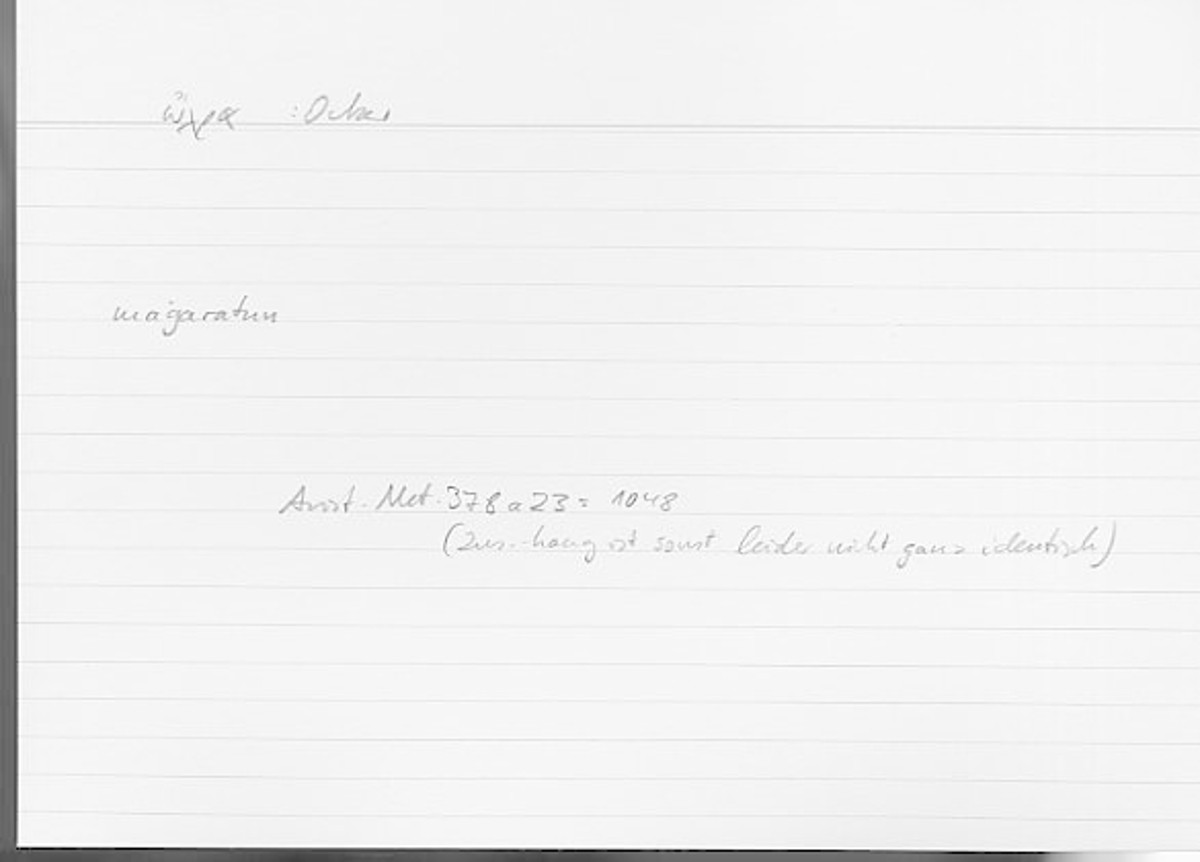 ὤχρα : Ocker
maġaratun
Arist. Met. 378 a 23 = 1048
(Zus.-hang ist sonst leider nicht ganz identisch)